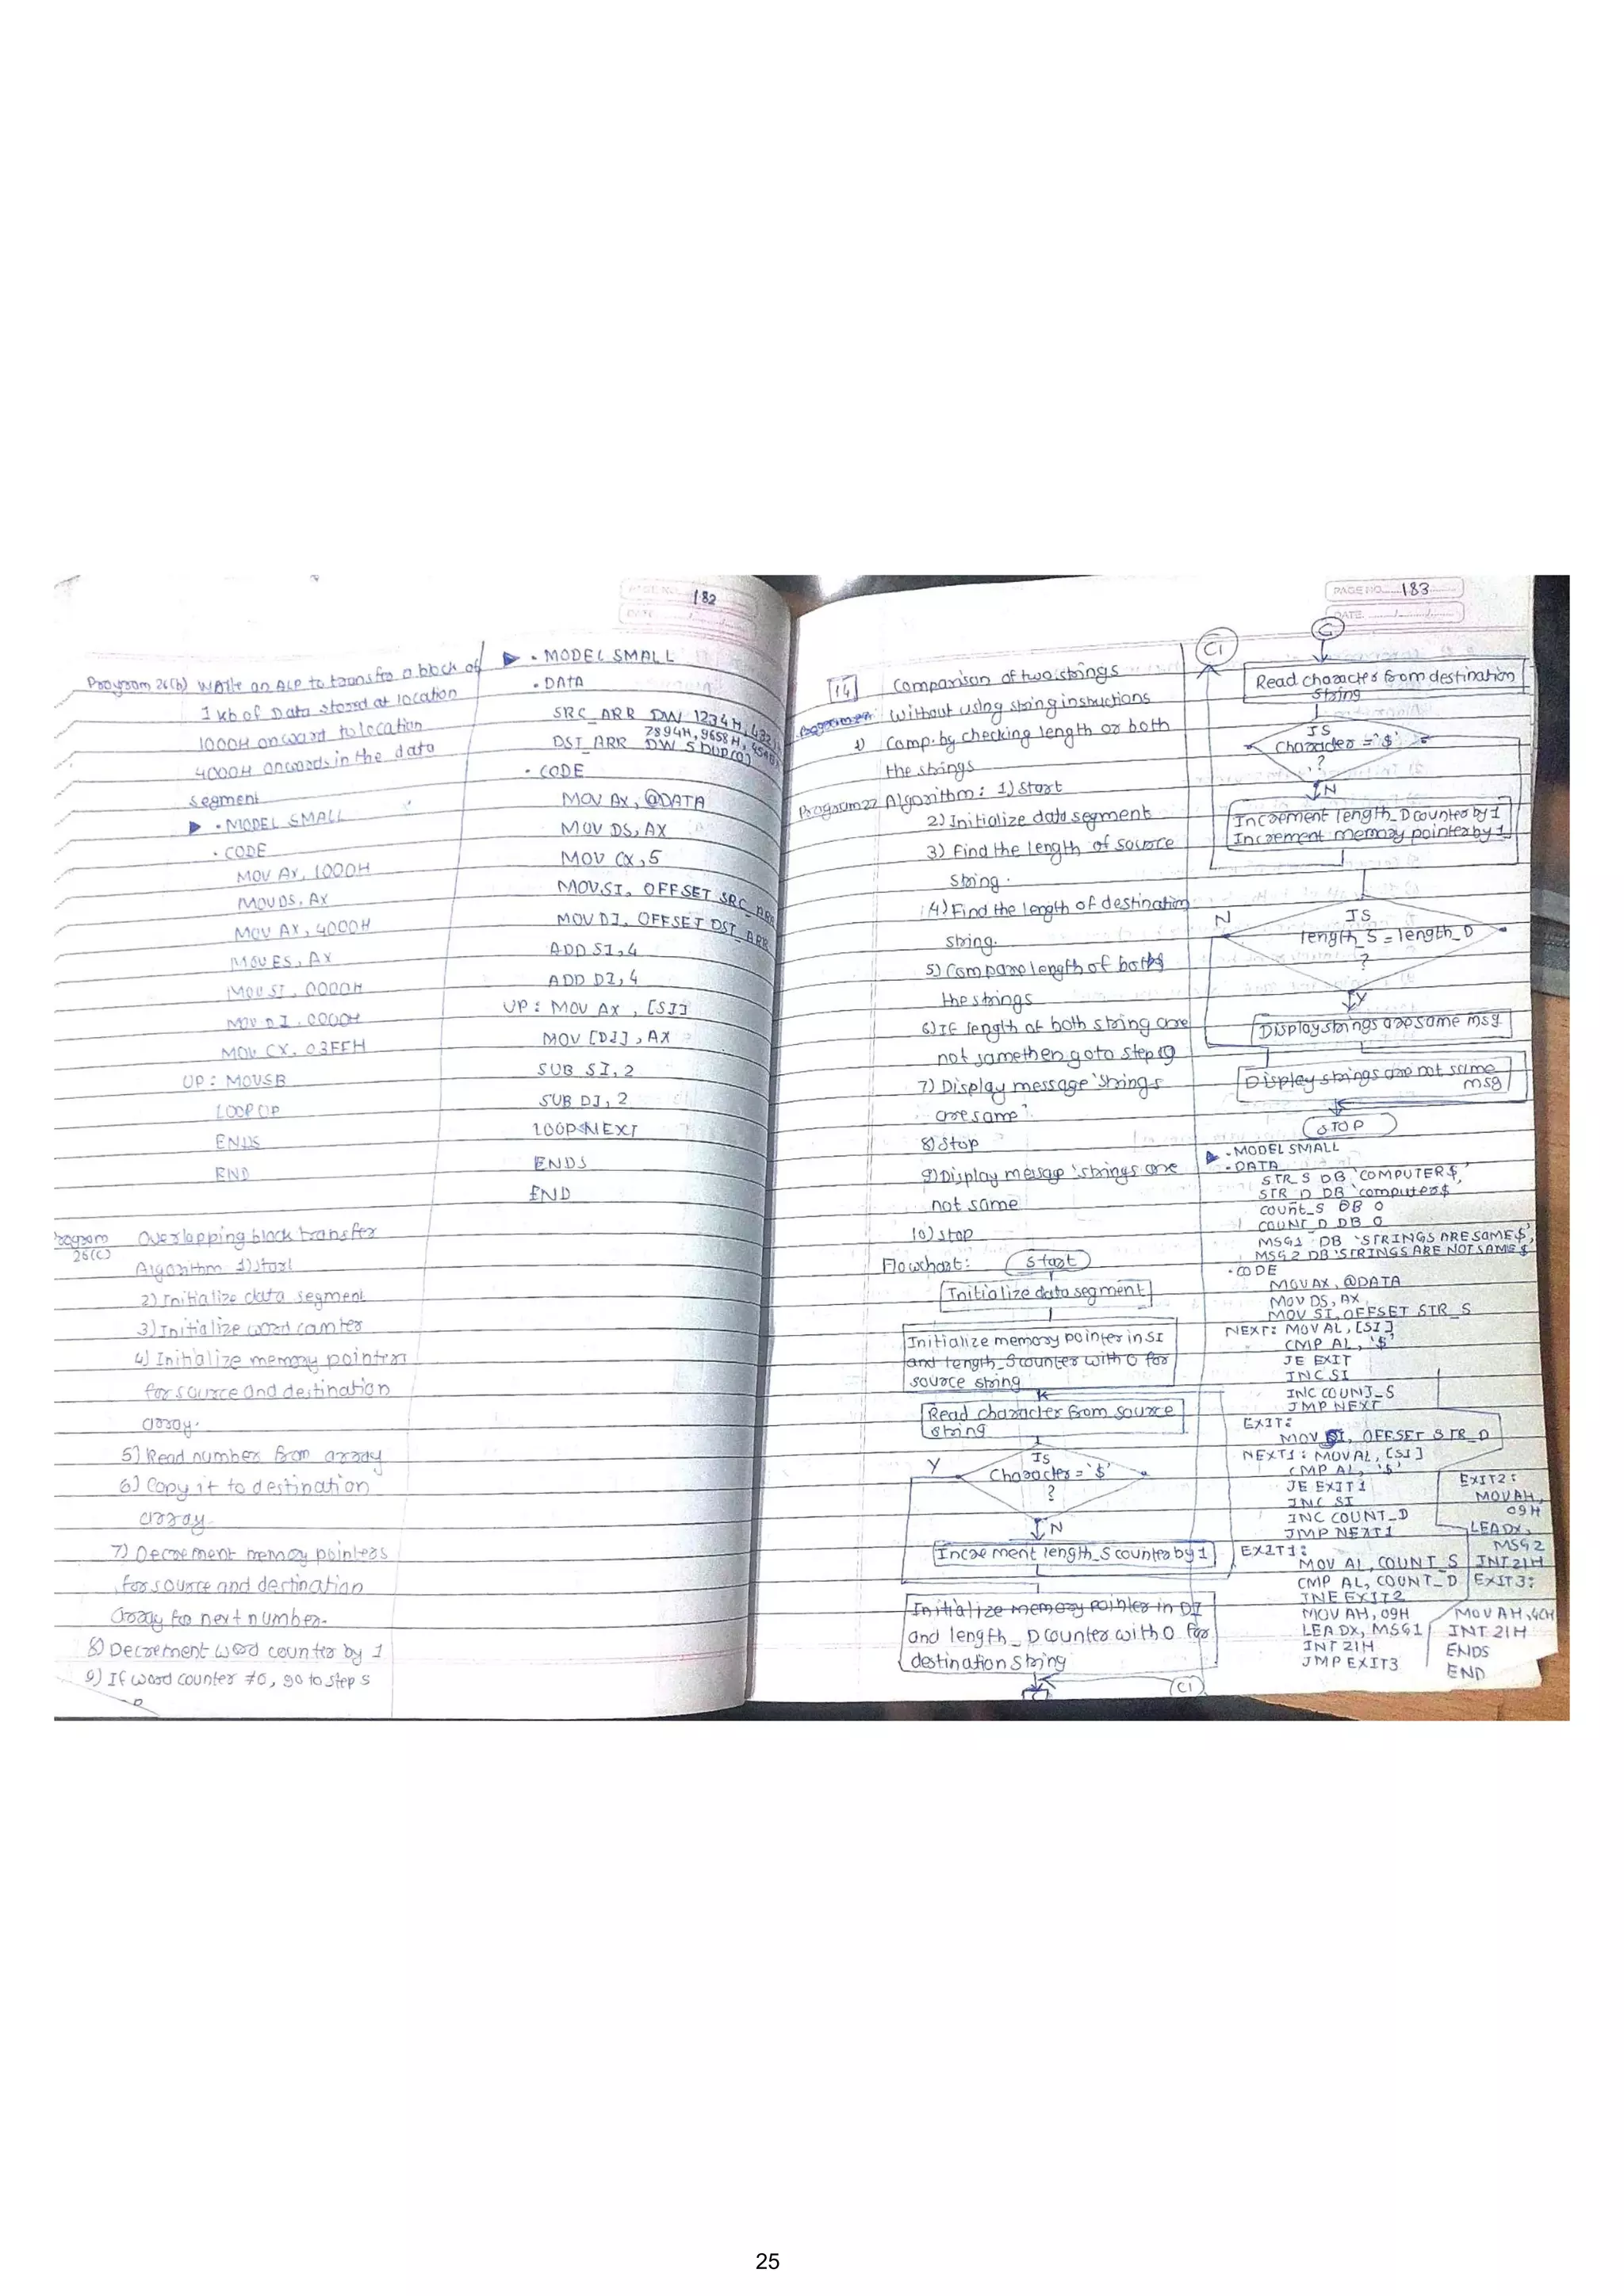 PAGE NO. 182
DATE / /
Program 26(b) Write an ALP to transfer a block of
1 kb of Data stored at location
1000H onward to location
4000H onwards in the data
segment
▶ .MODEL SMALL
.CODE
MOV AX, 1000H
MOV DS, AX
MOV AX, 4000H
MOV ES, AX
MOV SI, 0000H
MOV DI, 0000H
MOV CX, 03FFH
UP: MOVSB
LOOP UP
ENDS
END
Program 26(c) Overlapping block transfer
Algorithm 1) Start
2) Initialize data segment
3) Initialize word counter
4) Initialize memory pointers
for source and destination
array.
5) Read number from array
6) Copy it to destination
array
7) Decrement memory pointers
for source and destination
array for next number.
8) Decrement word counter by 1
9) If word counter ≠0, go to step 5
▶ .MODEL SMALL
.DATA
SRC_ARR DW 1234H,
7894H, 9658H,
DST_ARR DW 5 DUP(0)
.CODE
MOV AX, @DATA
MOV DS, AX
MOV CX, 5
MOV SI, OFFSET SRC_ARR
MOV DI, OFFSET DST_ARR
ADD SI, 4
ADD DI, 4
UP: MOV AX, [SI]
MOV [DI], AX
SUB SI, 2
SUB DI, 2
LOOP NEXT
ENDS
END
PAGE NO. 183
DATE / /
14 Comparison of two strings
without using string instructions
1) Comp. by checking length or both
the strings
Program 27 Algorithm: 1) Start
2) Initialize data segment
3) Find the length of source
string.
4) Find the length of destination
string.
5) Compare length of both
the strings
6) If length of both string are
not same then goto step 9
7) Display message 'strings
are same'.
8) Stop
9) Display message 'strings are
not same
10) stop
Flowchart: Start
Initialize data segment
Initialize memory pointer in SI
and length_S counter with 0 for
source string
Read character from source
string
Is
Character = '$'
?
Y
N
Increment length_S counter by 1
Initialize memory pointer in DI
and length_D counter with 0 for
destination string
C1
C1
Read character from destination
string
IS
Character = '$'
?
N
Increment length_D counter by 1
Increment memory pointer by 1
N
IS
length_S = length_D
?
Y
Display strings are same msg
Display strings are not same
msg
STOP
▶ .MODEL SMALL
.DATA
STR_S DB 'COMPUTER$'
STR_D DB 'computer$'
COUNT_S DB 0
COUNT_D DB 0
MSG1 DB 'STRINGS ARE SAME$'
MSG2 DB 'STRINGS ARE NOT SAME$
.CODE
MOV AX, @DATA
MOV DS, AX
MOV SI, OFFSET STR_S
NEXT: MOV AL, [SI]
CMP AL, '$'
JE EXIT
INC SI
INC COUNT_S
JMP NEXT
EXIT:
MOV SI, OFFSET STR_D
NEXT1: MOV AL, [SI]
CMP AL, '$'
JE EXIT1
INC SI
INC COUNT_D
JMP NEXT1
EXIT1:
MOV AL, COUNT_S
CMP AL, COUNT_D
JNE EXIT2
MOV AH, 09H
LEA DX, MSG1
INT 21H
JMP EXIT3
EXIT2:
MOV AH,
09H
LEA DX,
MSG2
INT 21H
EXIT3:
MOV AH, 4CH
INT 21H
ENDS
END
25